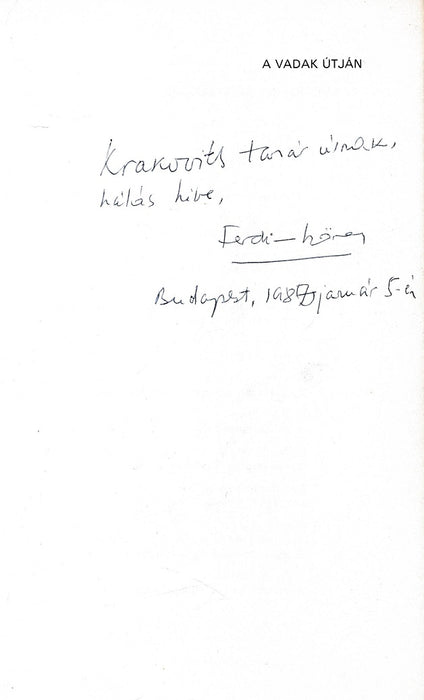 A VADAK ÚTJÁN
Krakovits tanár úrnak,
hálás híve,
Ferdi
Budapest, 1987 január 5-én